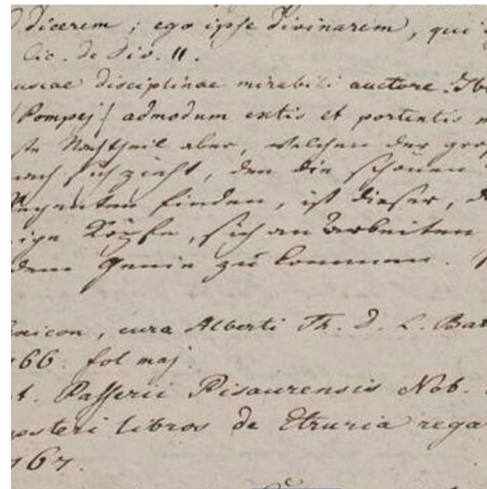 dicerem; ego ipse divinarem, qui
Cic. de Div. II.
disciplinae mirabili auctore. Ibi
Pompej) admodum extis et portentis m
Nachtheil aber, welchen der gros
nach sich zieht, den die schönen
Regenten finden, ist dieser, d
Köpfe, sich an Arbeiten
dem Genie zu kommen.
cura Alberti Th. D. L. Bat
66. fol maj.
Passerii Pisaurensis Nob.
libros de Etruria rega
67.